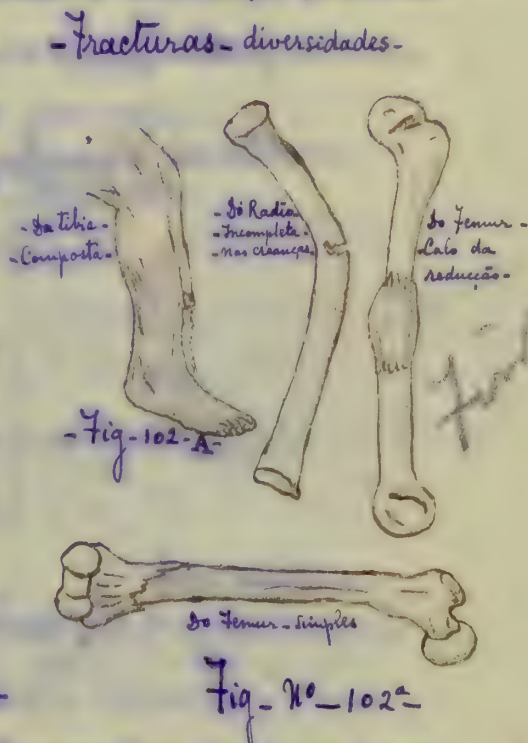 -Fracturas- diversidades-
-Da tibia-
-Composta-
-Do Radio-
-Incompleta-
-nas creanças-
Do Femur-
-Calo da
reducção-
-Fig-102-A-
Do Femur-simples
Fig-Nº-102ª-